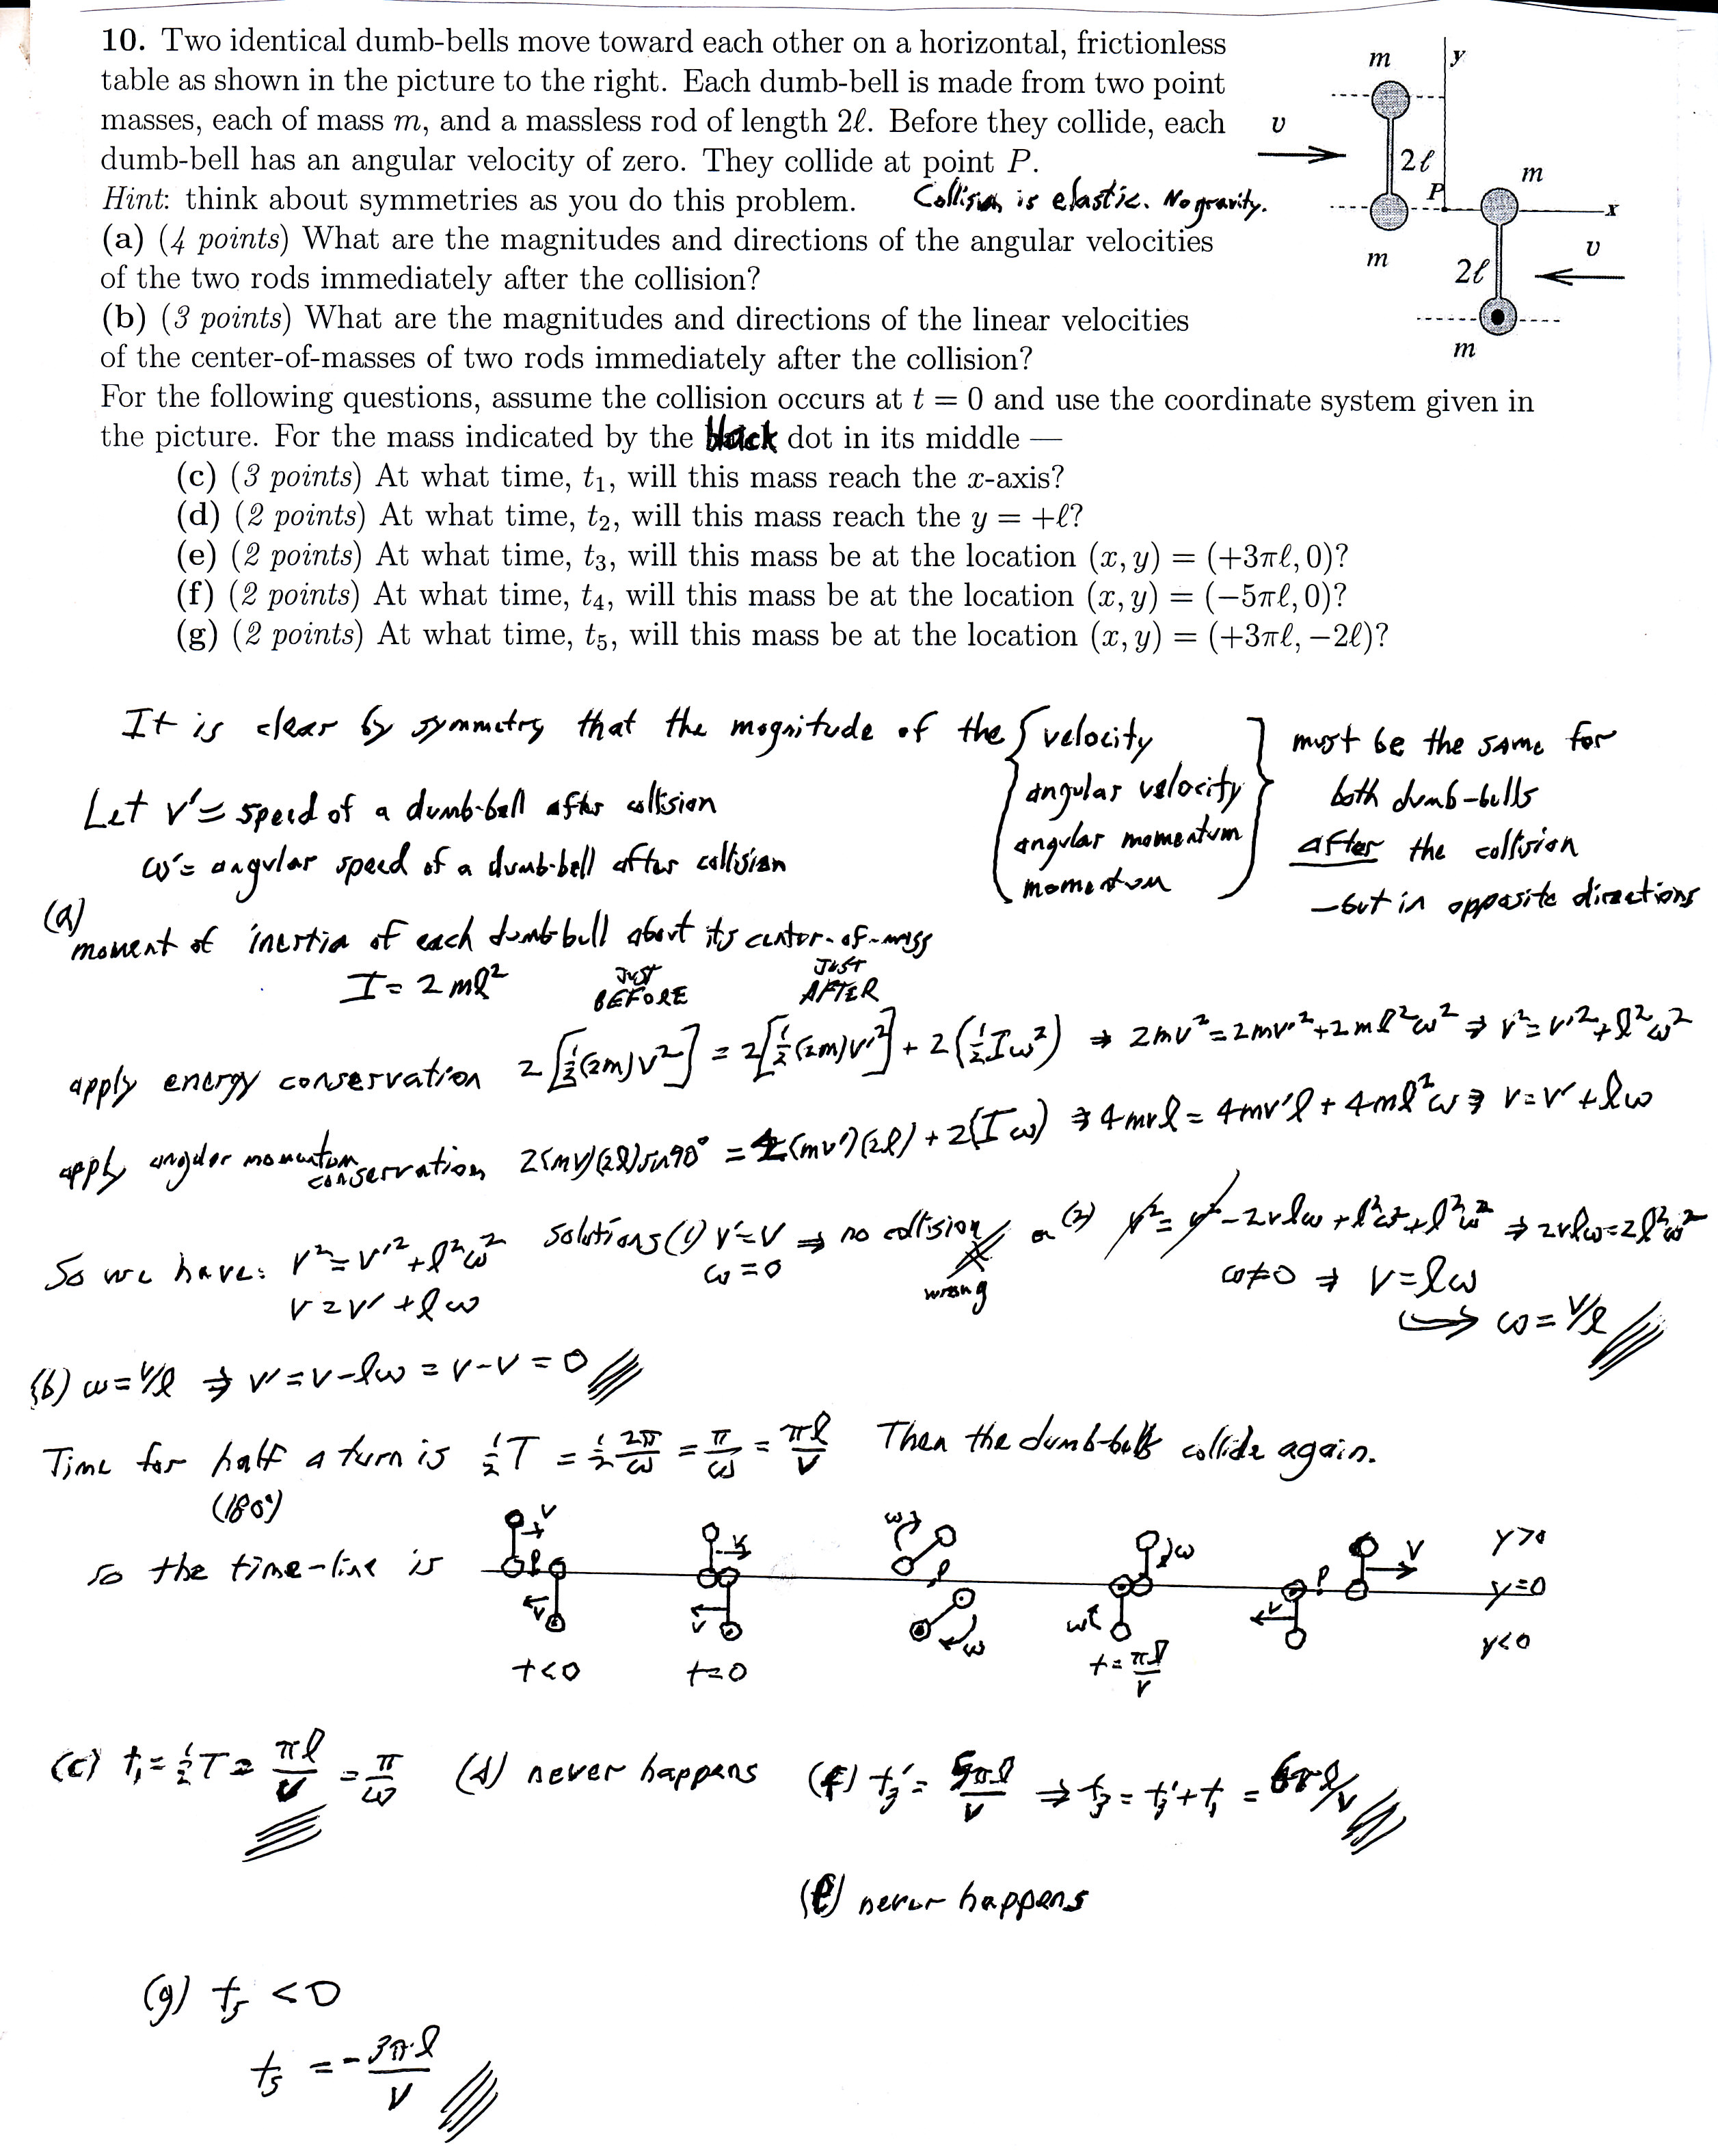 10. Two identical dumb-bells move toward each other on a horizontal, frictionless
table as shown in the picture to the right. Each dumb-bell is made from two point
masses, each of mass m, and a massless rod of length 2ℓ. Before they collide, each
dumb-bell has an angular velocity of zero. They collide at point P.
Hint: think about symmetries as you do this problem. Collision is elastic. No gravity.
(a) (4 points) What are the magnitudes and directions of the angular velocities
of the two rods immediately after the collision?
(b) (3 points) What are the magnitudes and directions of the linear velocities
of the center-of-masses of two rods immediately after the collision?
m y
v
2ℓ
P m
x
m v
2ℓ
m
For the following questions, assume the collision occurs at t = 0 and use the coordinate system given in
the picture. For the mass indicated by the black dot in its middle —
(c) (3 points) At what time, t₁, will this mass reach the x-axis?
(d) (2 points) At what time, t₂, will this mass reach the y = +ℓ?
(e) (2 points) At what time, t₃, will this mass be at the location (x, y) = (+3πℓ, 0)?
(f) (2 points) At what time, t₄, will this mass be at the location (x, y) = (−5πℓ, 0)?
(g) (2 points) At what time, t₅, will this mass be at the location (x, y) = (+3πℓ, −2ℓ)?
It is clear by symmetry that the magnitude of the { velocity
angular velocity
angular momentum
momentum } must be the same for
both dumb-bells
after the collision
—but in opposite directions
Let v' = speed of a dumb-bell after collision
ω' = angular speed of a dumb-bell after collision
(a)
moment of inertia of each dumb-bell about its center-of-mass
I = 2mℓ² JUST BEFORE JUST AFTER
apply energy conservation 2[½(2m)v²] = 2[½(2m)v'²] + 2(½Iω²) ⇒ 2mv² = 2mv'² + 2mℓ²ω² ⇒ v² = v'² + ℓ²ω²
apply angular momentum conservation 2(mv)(2ℓ)sin90° = 2(mv')(2ℓ) + 2(Iω) ⇒ 4mvℓ = 4mv'ℓ + 4mℓ²ω ⇒ v = v' + ℓω
So we have: v² = v'² + ℓ²ω² solutions (1) v' = v ⇒ no collision or (2) v² = v² - 2vℓω + ℓ²ω² + ℓ²ω² ⇒ 2vℓω = 2ℓ²ω²
v = v' + ℓω ω = 0 wrong ω ≠ 0 ⇒ v = ℓω
↪ ω = v/ℓ
(b) ω = v/ℓ ⇒ v' = v - ℓω = v - v = 0
Time for half a turn is ½T = ½ 2π/ω = π/ω = πℓ/v Then the dumb-bells collide again.
(180°)
so the time-line is
v P v v v ω P ω ω ω v P v
y>0
y=0
y<0
t<0 t=0 t = πℓ/v
(c) t₁ = ½T = πℓ/v = π/ω (d) never happens (f) t₃' = 5πℓ/v ⇒ t₃ = t₃' + t₁ = 6πℓ/v
(e) never happens
(g) t₅ < 0
t₅ = - 3πℓ/v